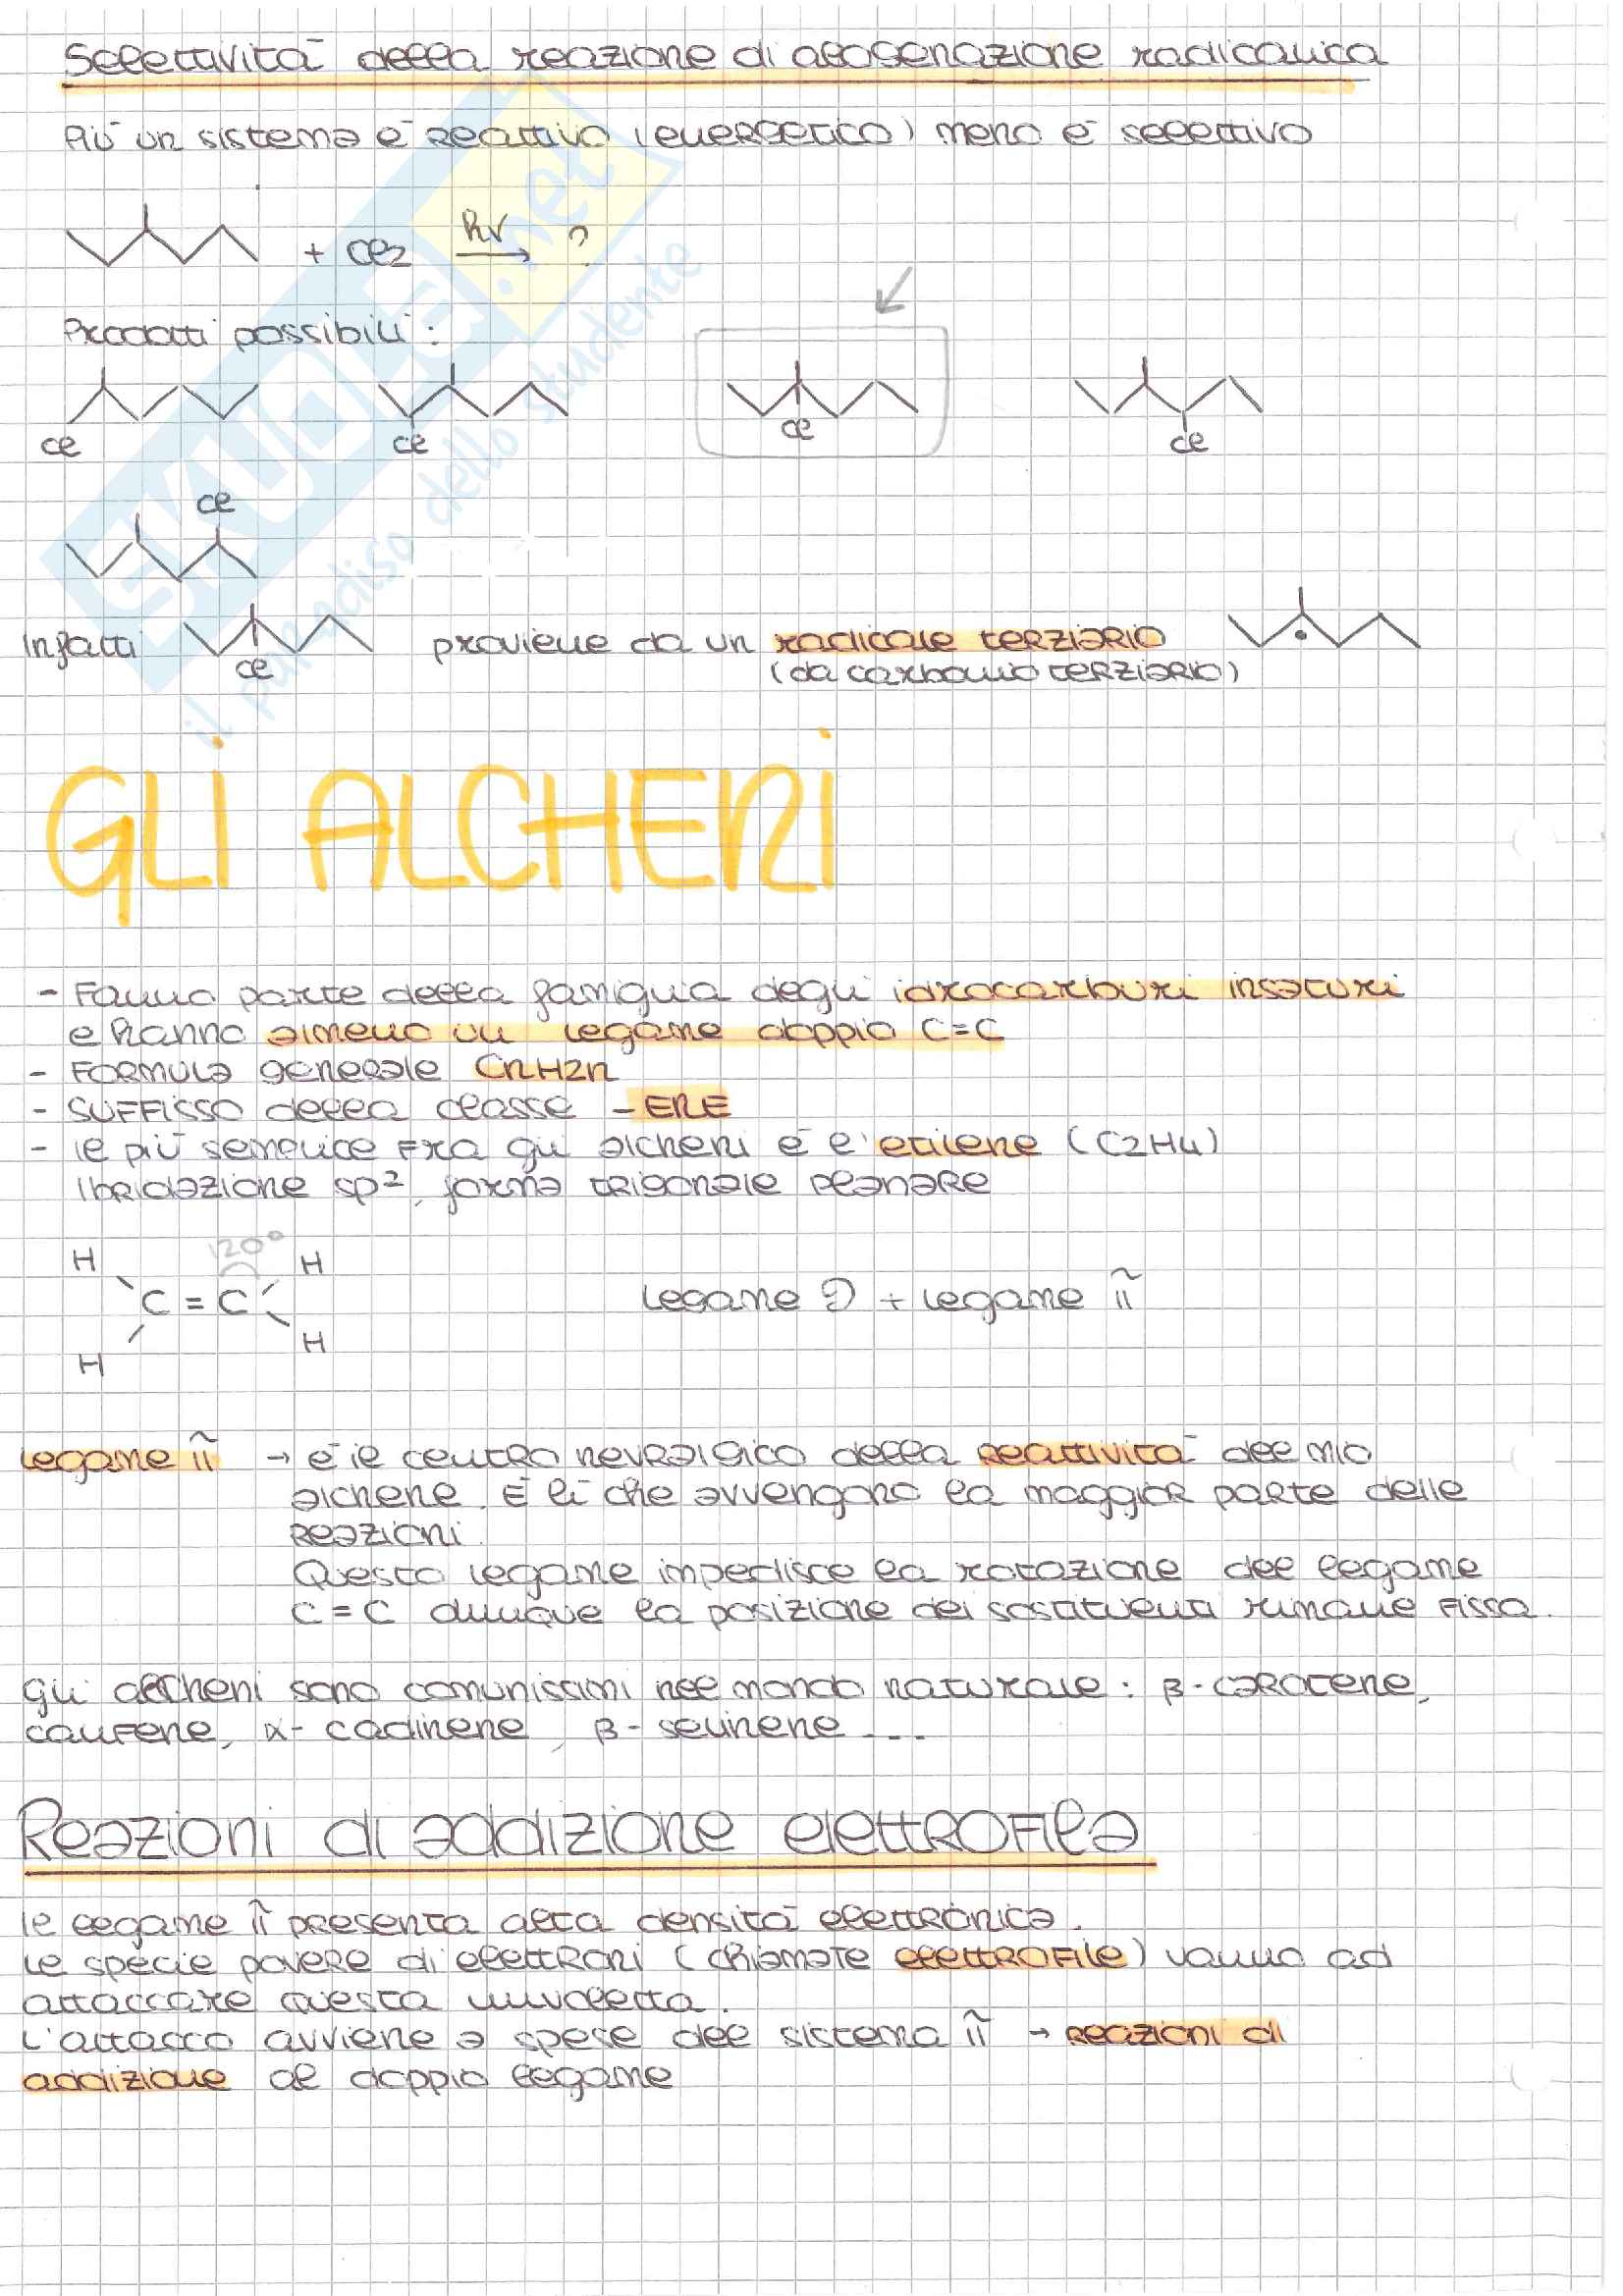 Selettività della reazione di alogenazione radicalica
Più un sistema è reattivo (energetico) meno è selettivo
+ Cl2 hν → ?
Prodotti possibili:
Cl Cl Cl Cl
Cl
Infatti proviene da un radicale terziario
Cl (da carbonio terziario)
GLI ALCHENI
- Fanno parte della famiglia degli idrocarburi insaturi
e hanno almeno un legame doppio C=C
- Formula generale CnH2n
- Suffisso della classe -ENE
- Il più semplice fra gli alcheni è l'etilene (C2H4)
Ibridazione sp², forma trigonale planare
H 120° H
C = C legame σ + legame π
H H
legame π → è il centro nevralgico della reattività del mio
alchene. È lì che avvengono la maggior parte delle
reazioni.
Questo legame impedisce la rotazione del legame
C=C dunque la posizione dei sostituenti rimane fissa.
Gli alcheni sono comunissimi nel mondo naturale: β-carotene,
canfene, α-cadinene, β-selinene ...
Reazioni di addizione elettrofila
Il legame π presenta alta densità elettronica.
Le specie povere di elettroni (chiamate elettrofile) vanno ad
attaccare questa nuvoletta.
L'attacco avviene a spese del sistema π → reazioni di
addizione al doppio legame
SKUOLA.net
il paradiso dello studente